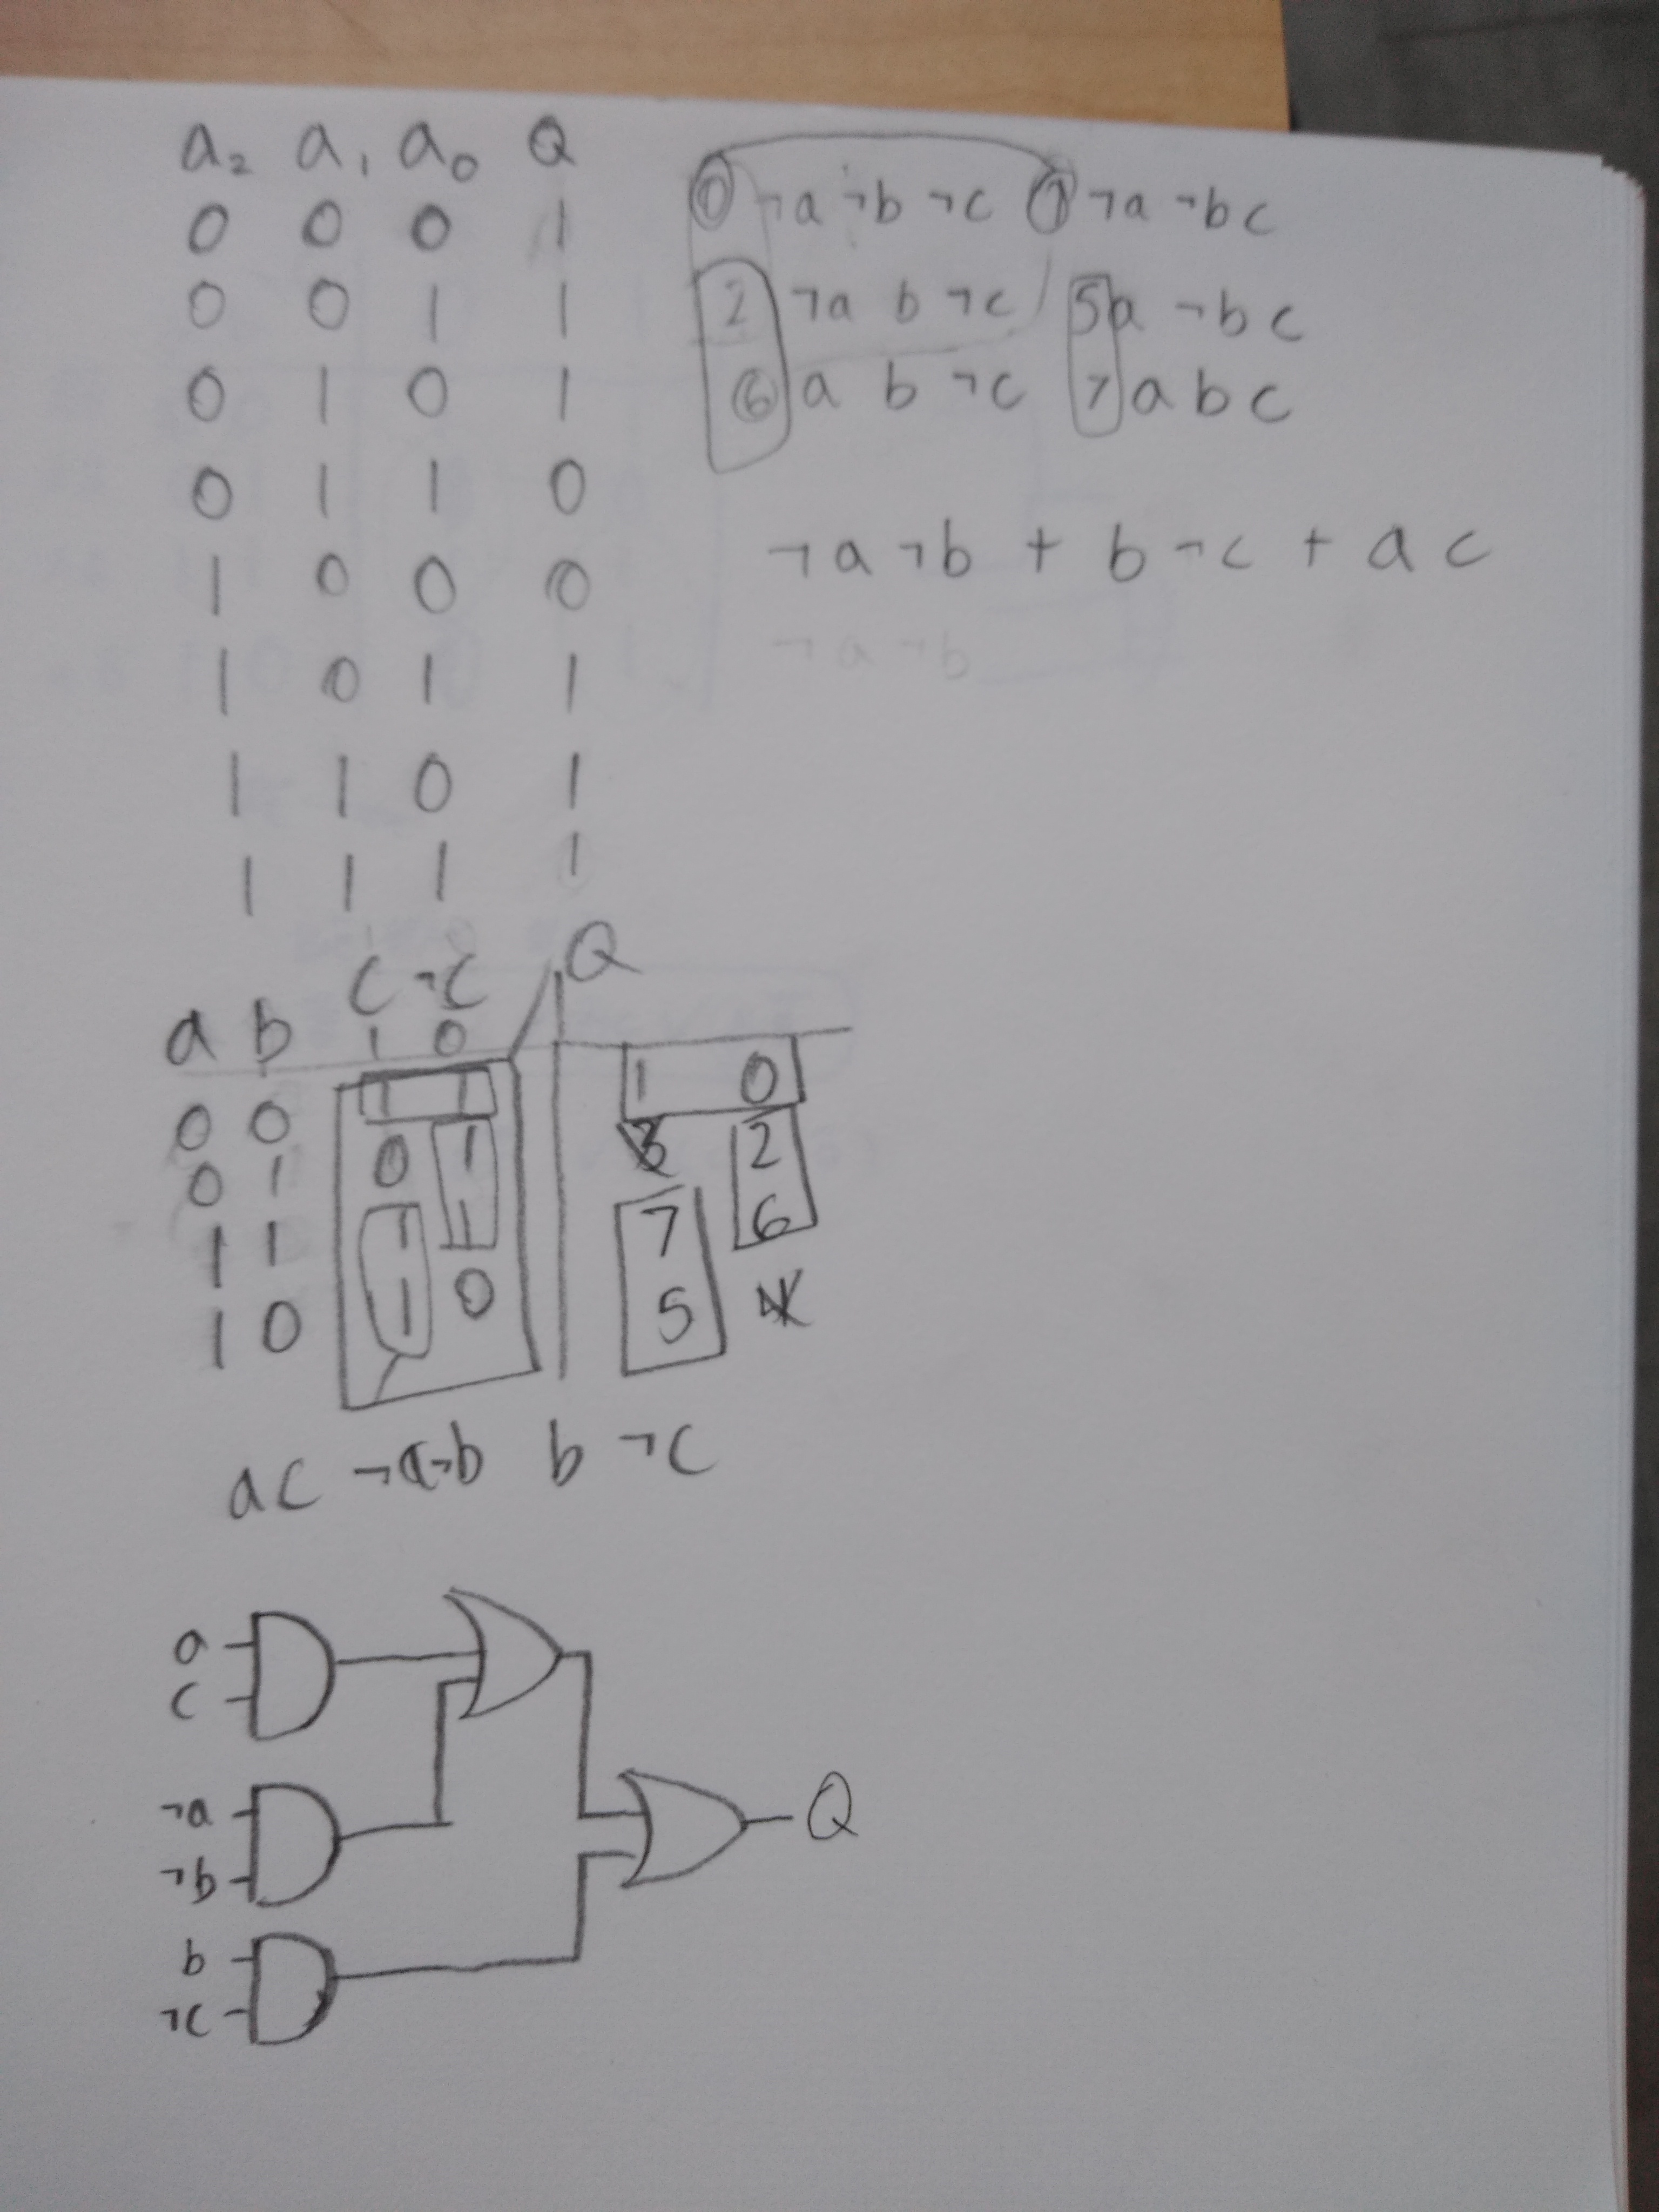 a₂ a₁ a₀ Q
0 0 0 1
0 0 1 1
0 1 0 1
0 1 1 0
1 0 0 0
1 0 1 1
1 1 0 1
1 1 1 1
0 ¬a ¬b ¬c 1 ¬a ¬b c
2 ¬a b ¬c 5 a ¬b c
6 a b ¬c 7 a b c
¬a ¬b + b ¬c + a c
¬a ¬b
c ¬c Q
a b 1 0
0 0 1 1 1 0
0 1 0 1 3 2
1 1 1 1 7 6
1 0 1 0 5 4
ac ¬a¬b b ¬c
a
c
¬a
¬b
Q
b
¬c